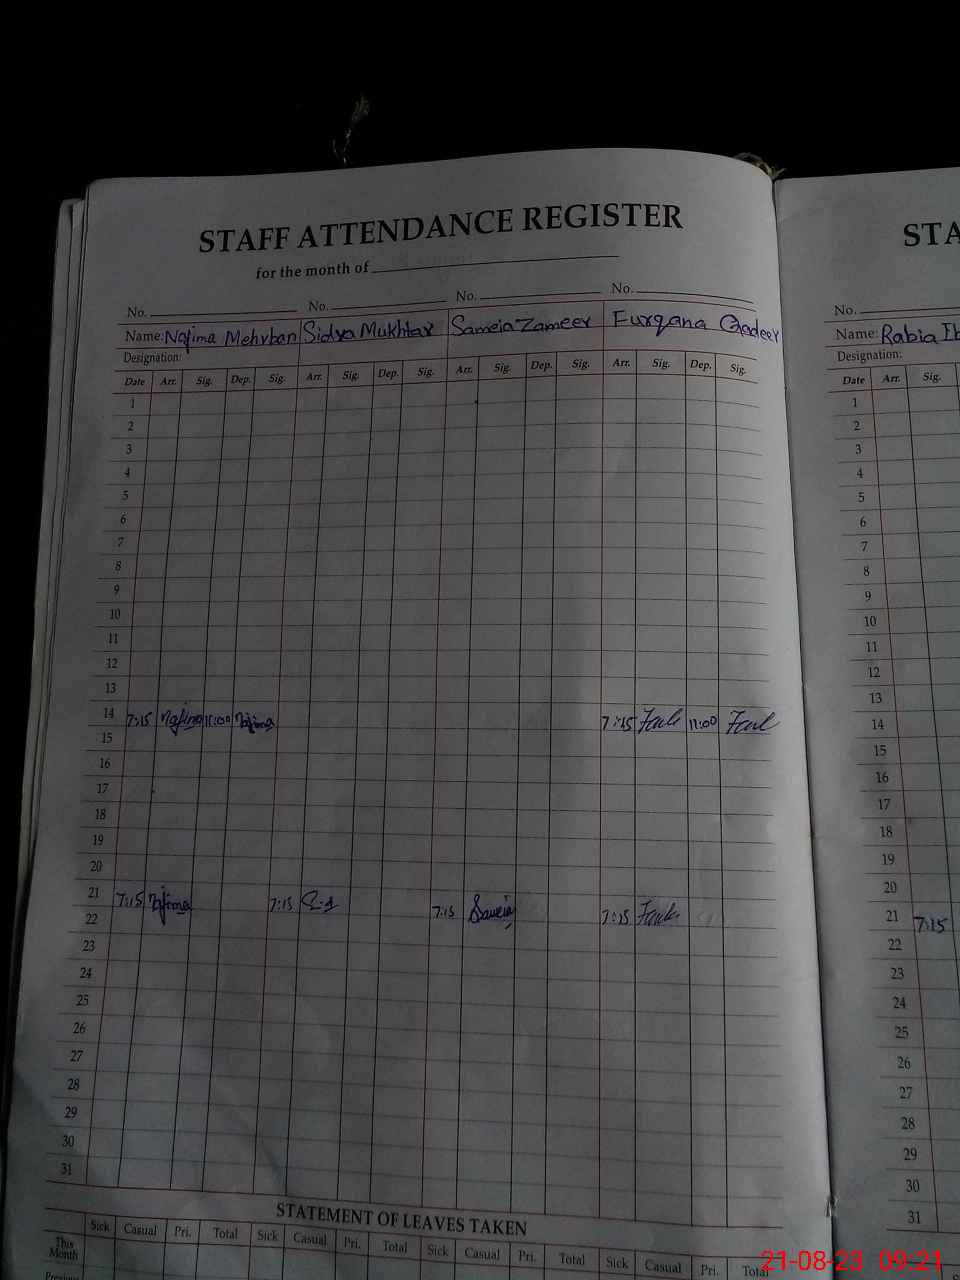 STAFF ATTENDANCE REGISTER
for the month of
No. No. No. No.
Name: Najima Mehrban Sidra Mukhtar Sameia Zameer Furqana Qadeer
Designation:
Date Arr. Sig. Dep. Sig. Arr. Sig. Dep. Sig. Arr. Sig. Dep. Sig. Arr. Sig. Dep. Sig.
1
2
3
4
5
6
7
8
9
10
11
12
13
14 7:15 Najima 11:00 Najima 7:15 11:00
15
16
17
18
19
20
21 7:15 Najima 7:15 7:15 Sameia 7:15
22
23
24
25
26
27
28
29
30
31
STATEMENT OF LEAVES TAKEN
Sick Casual Pri. Total Sick Casual Pri. Total Sick Casual Pri. Total Sick Casual Pri. Total
This Month
STA
No.
Name: Rabia
Designation:
Date Arr. Sig.
1
2
3
4
5
6
7
8
9
10
11
12
13
14
15
16
17
18
19
20
21 7:15
22
23
24
25
26
27
28
29
30
31
21-08-23 09:21